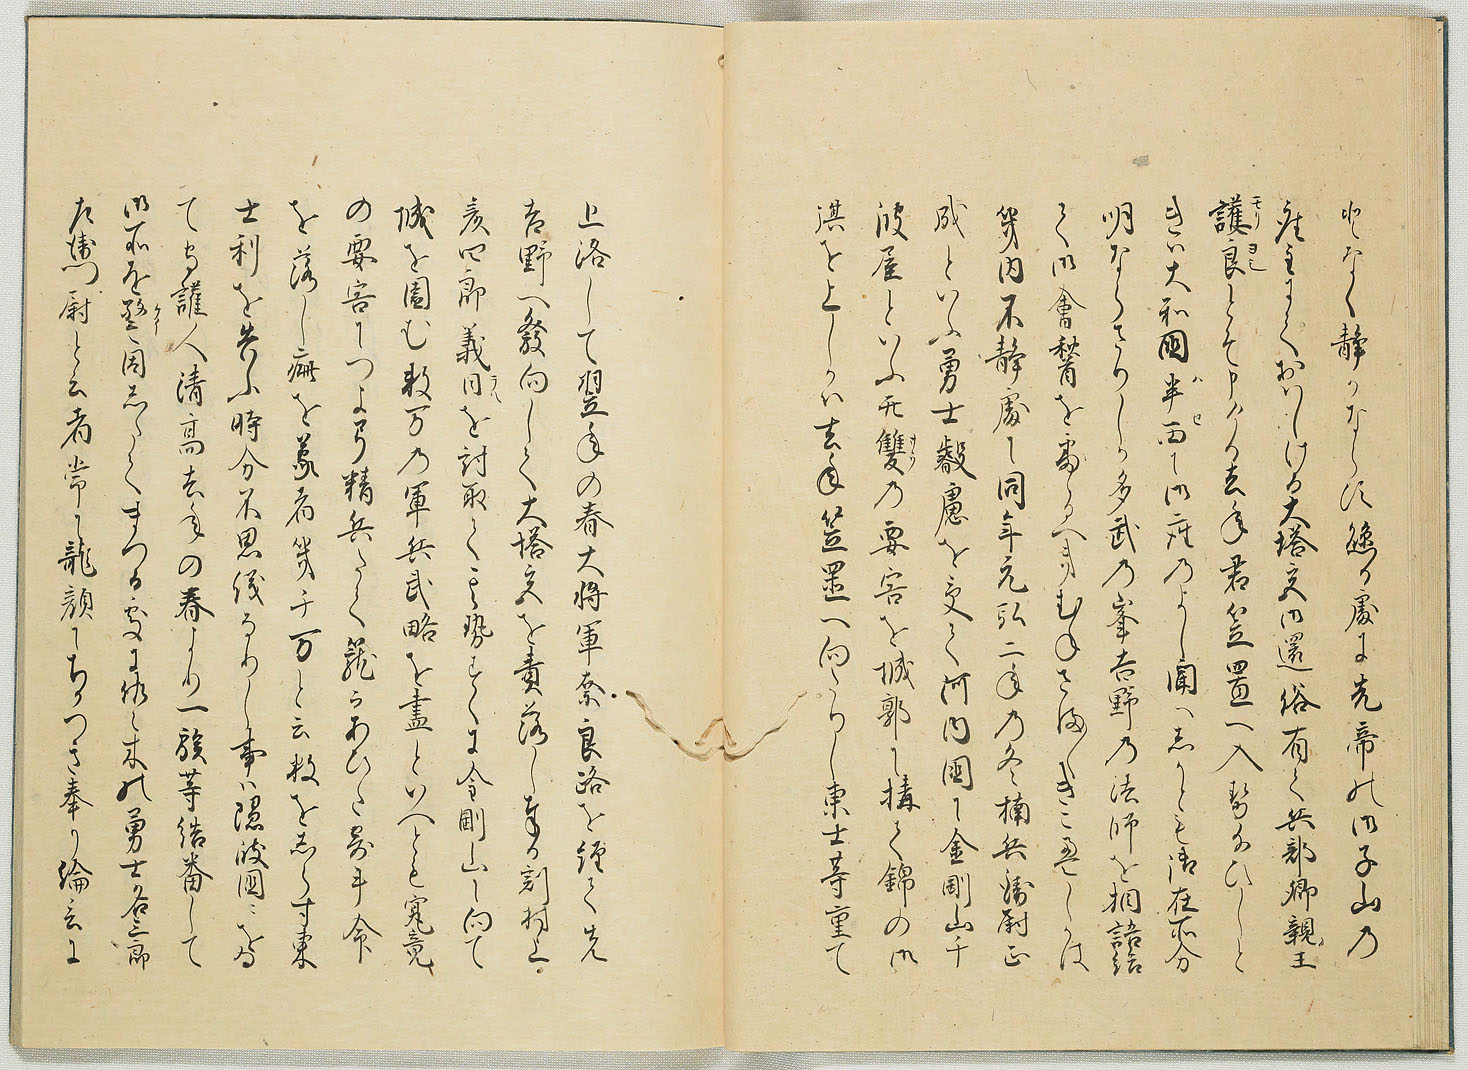 となく静かならす懸る處に先帝の御子山乃
座主にておはしける大塔宮御還俗有て兵部卿親王
護良とそ申ける去年君笠置へ入せ給ひしと
きハ大和國半西に御座のよし聞へしかとも御在所分
明ならさりしか多武乃峯吉野乃法師を相語給
て御會稽を
幾内不静處に同年元弘二年乃冬楠兵衛尉正
成といふ勇士叡慮を受て河内國に金剛山千
波屋といふ無雙乃要害を城郭に構て錦の御
旗を上しかハ去年笠置へ向ひし東士等重て
上洛して翌年の春大将軍奈良路を経て先
吉野へ發向して大塔宮を責落し奉る割村上
彦四郎義日を討取て其勢すくに金剛山に向て
城を圍む数万乃軍兵武略を盡といへとも究竟
の要害につよ弓精兵たて籠らあひた寄手命
を落し疵を蒙者幾千万と云数をしらす東
士利を失ふ時分不思議なりし事ハ隠岐國にをゐ
て守護人清高去年の春より一族等結番して
御所を警固したてまつる處に佐々木の勇士名三郎
左衛門尉と云者常に龍顔にちかつき奉り綸言に